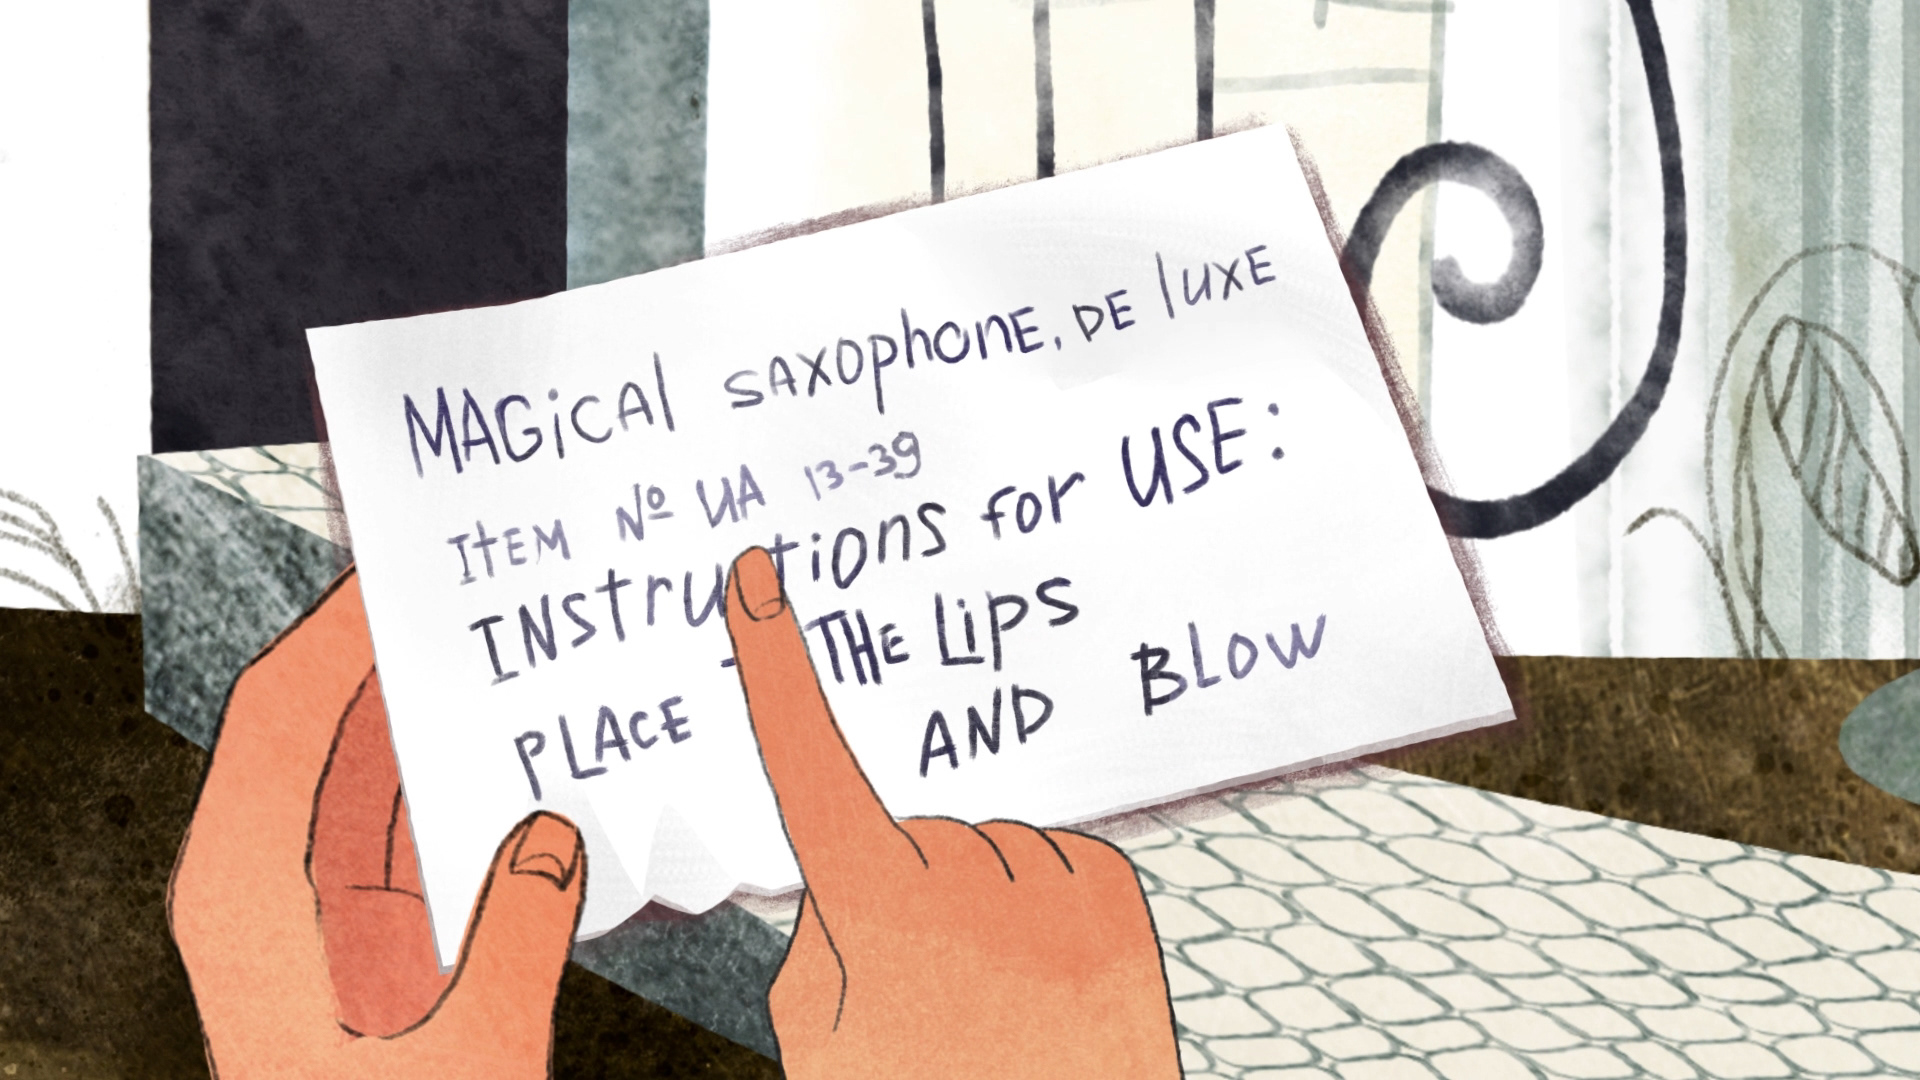 MAGiCAl SAXOphOnE, DE luXE
ItEM Nº UA 13-39
INStructions for USE:
- THE LipS
PLACE AND BLOW